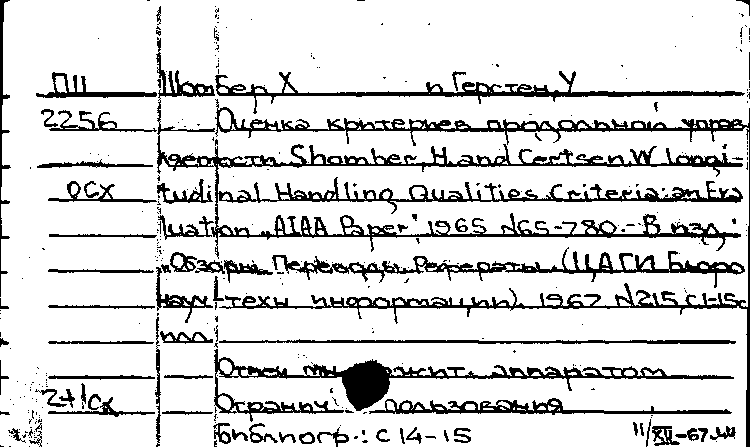 ПШ Шомбер, Х и Герстен, У
2256 Оценка критериев продольной управ
ляемости Shomber, H. and Certsen, W longi-
ОСХ tudinal Handling Qualities Criteria: an Eva
luation „AIAA Paper", 1965 N65-780.- В изд.:
„Обзоры. Переводы. Рефераты. (ЦАГИ Бюро
науч-техн информации). 1967 N215, с1-15с
илл
Отсеч аппаратом
Огранич пользования
Библиогр.: С 14-15 11/XII-67